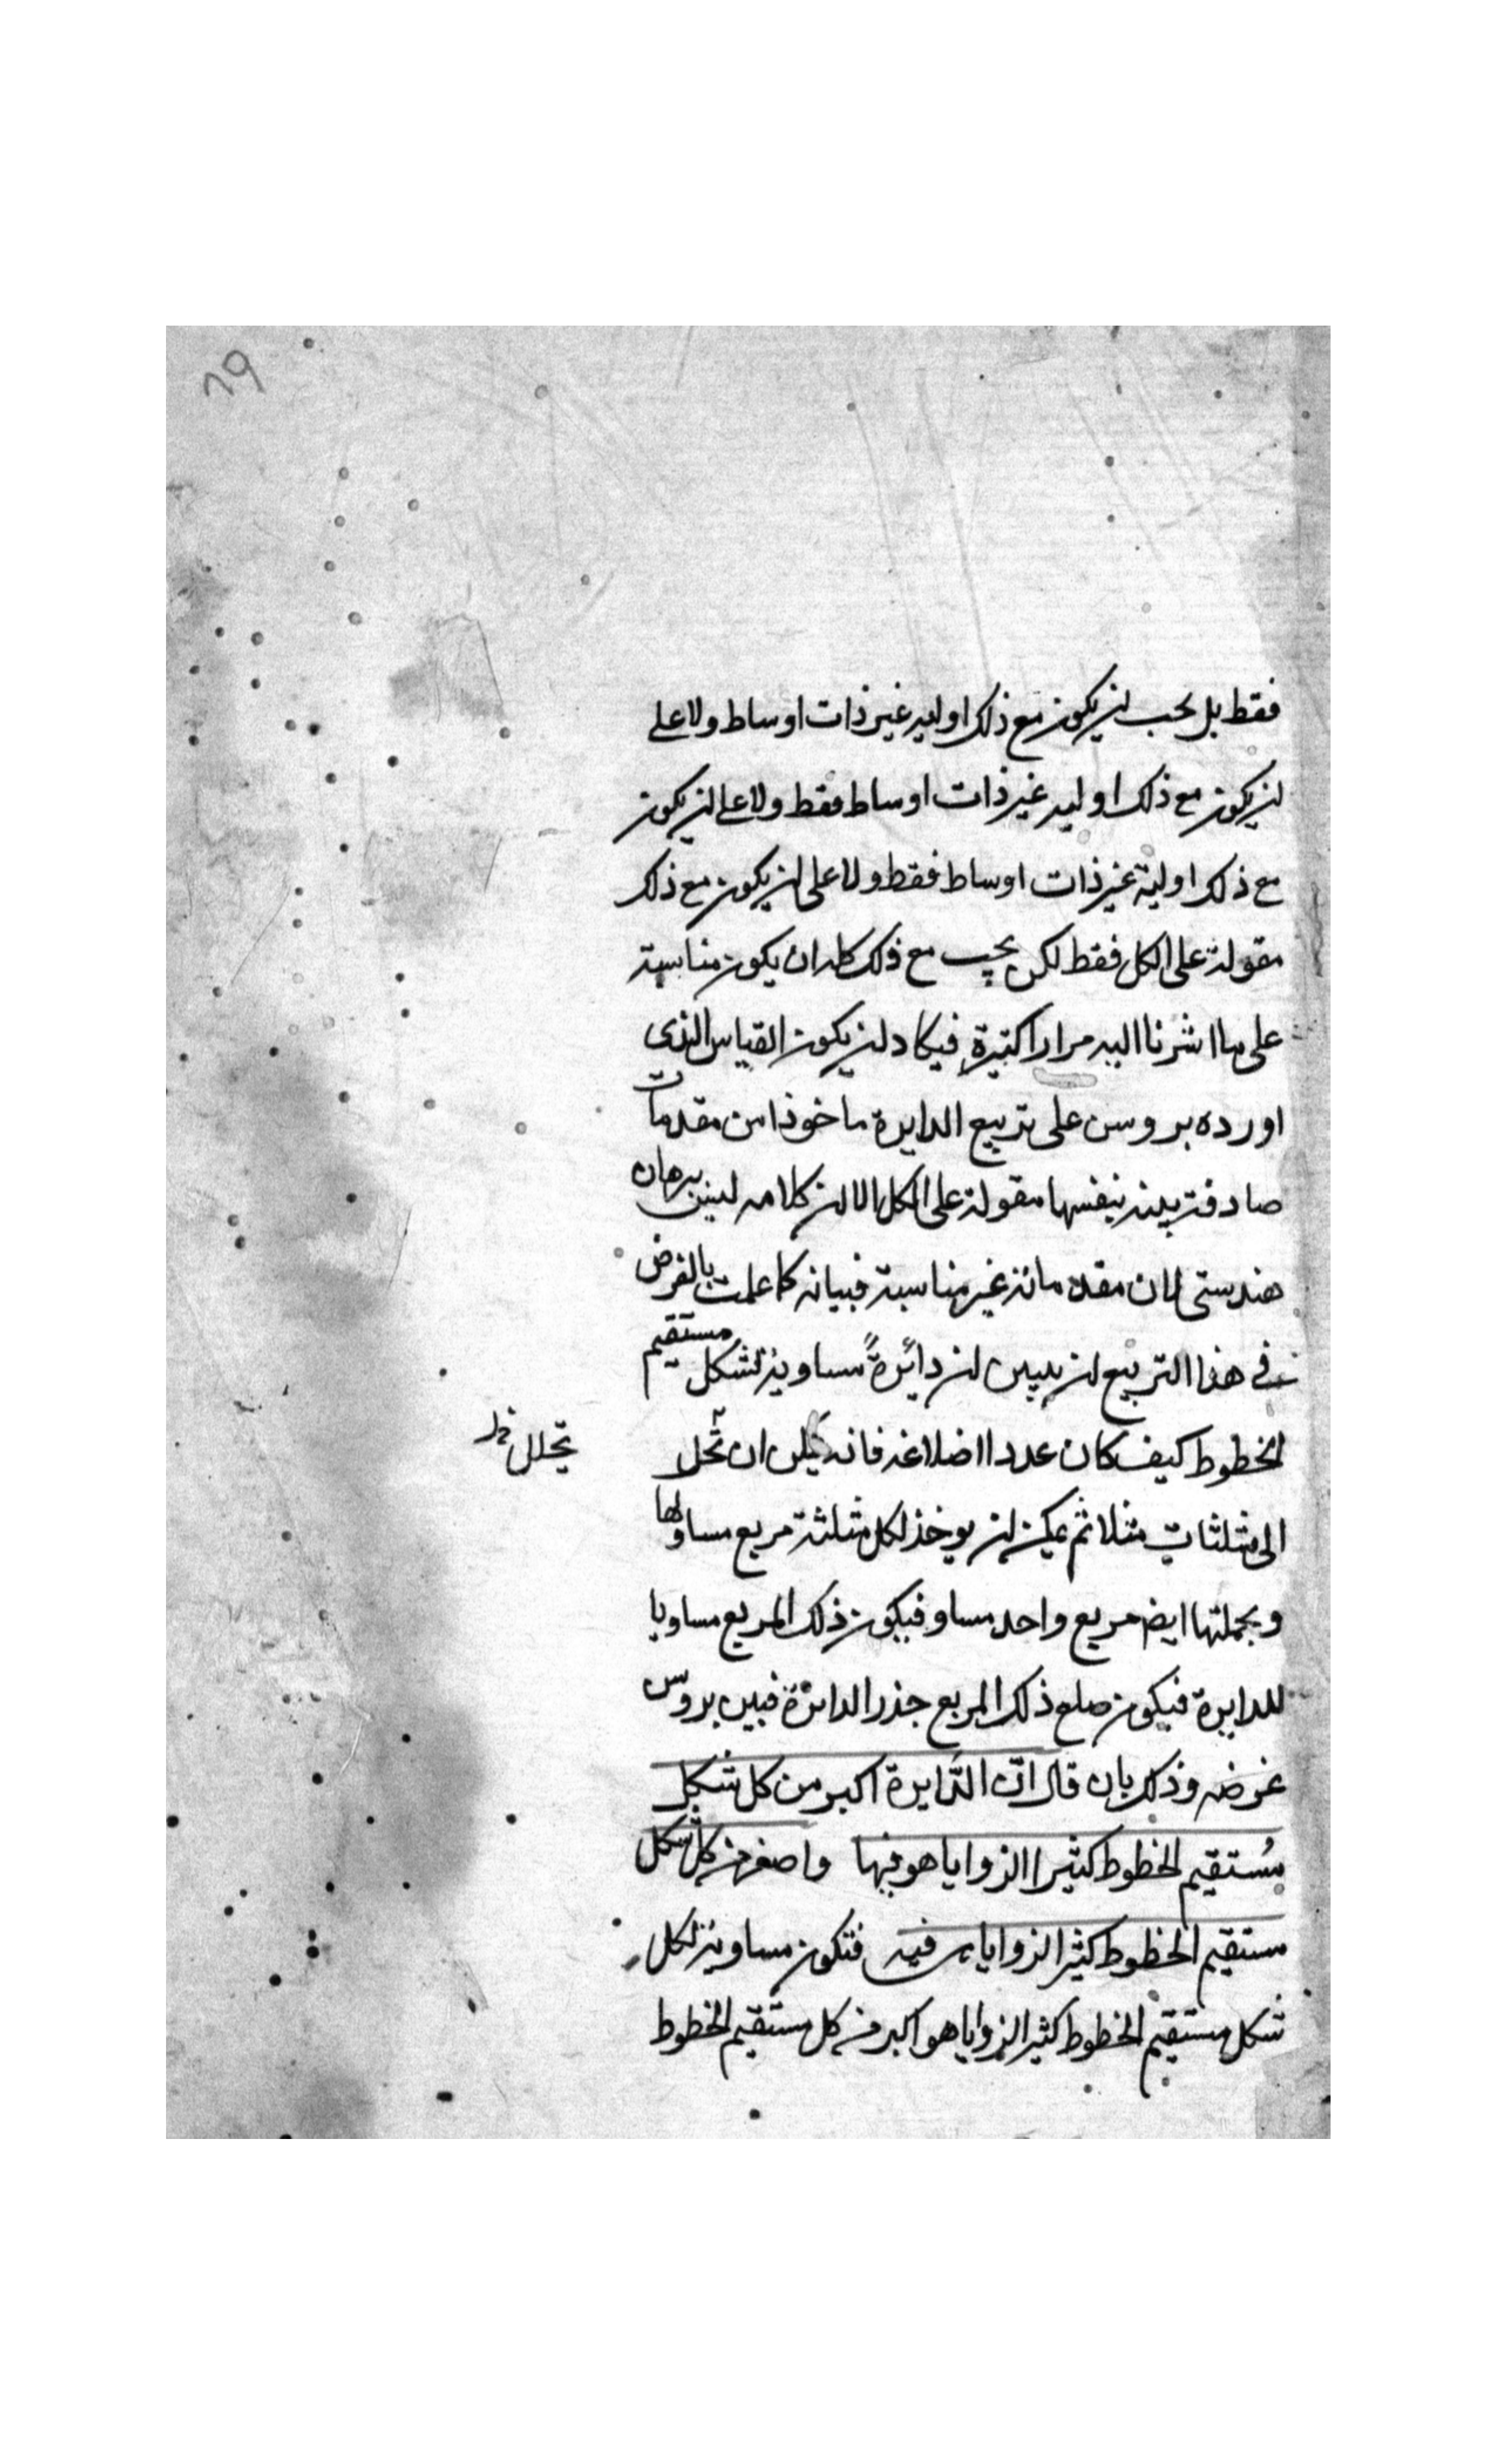 ٦٩
فقط بل يجب ان يكون مع ذلك اوليه غير ذات اوساط ولا على
ان يكون مع ذلك اوليه غير ذات اوساط فقط ولا على ان يكون
مع ذلك اولية غير ذات اوساط فقط ولا على ان يكون مع ذلك
مقولة على الكل فقط لكن يجب مع ذلك كله ان يكون مناسبة
على ما اشرنا اليه مرارا كثيرة فيكاد ان يكون القياس الذى
اورده بروسن على تربيع الدايرة ماخوذا من مقدمات
صادقة بينه بنفسها مقولة على الكل الا ان كلامه ليس ببرهان
هندستى لان مقدماته غير مناسبة فبيانه كما علمت بالفرض
فى هذا التربيع ان يبين ان دائرةً مساوية لشكل مستقيم
الخطوط كيف كان عدد اضلاعه فانه يمكن ان تحل
تحلل
الى مثلثات مثلا ثم يمكن ان يوخذ لكل مثلثة مربع مساو لها
وبجملتها ايض مربع واحد مساو فيكون ذلك المربع مساويا
للدايرة فيكون ضلع ذلك المربع جذر الدائرة فبين بروس
غرضه وذلك بان قال انّ الدّايرة اكبر من كل شكل
مُستقيم الخطوط كثير الزوايا هو فيها واصغر من كل شكل
مستقيم الخطوط كثير الزوايا هى فيه فتكون مساوية لكل
شكل مستقيم الخطوط كثير الزوايا هو اكبر من كل مستقيم الخطوط